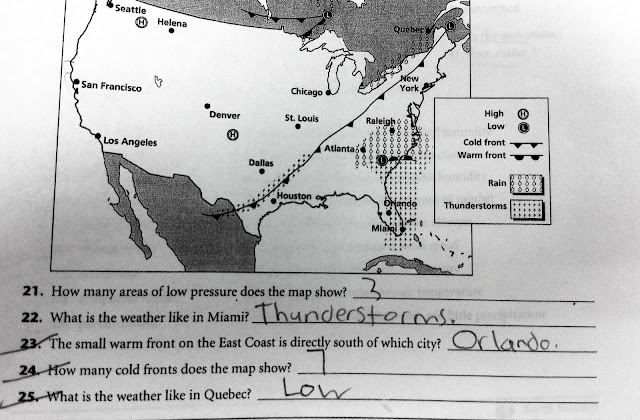 Seattle
Helena
H
L
Quebec
L
San Francisco
Chicago
New
York
Denver
St. Louis
Raleigh
High H
Low L
H
Los Angeles
Atlanta
L
Cold front
Warm front
Dallas
Rain
Houston
Orlando
Thunderstorms
Miami
21. How many areas of low pressure does the map show? 3
22. What is the weather like in Miami? Thunderstorms.
23. The small warm front on the East Coast is directly south of which city? Orlando.
24. How many cold fronts does the map show? 7
25. What is the weather like in Quebec? Low